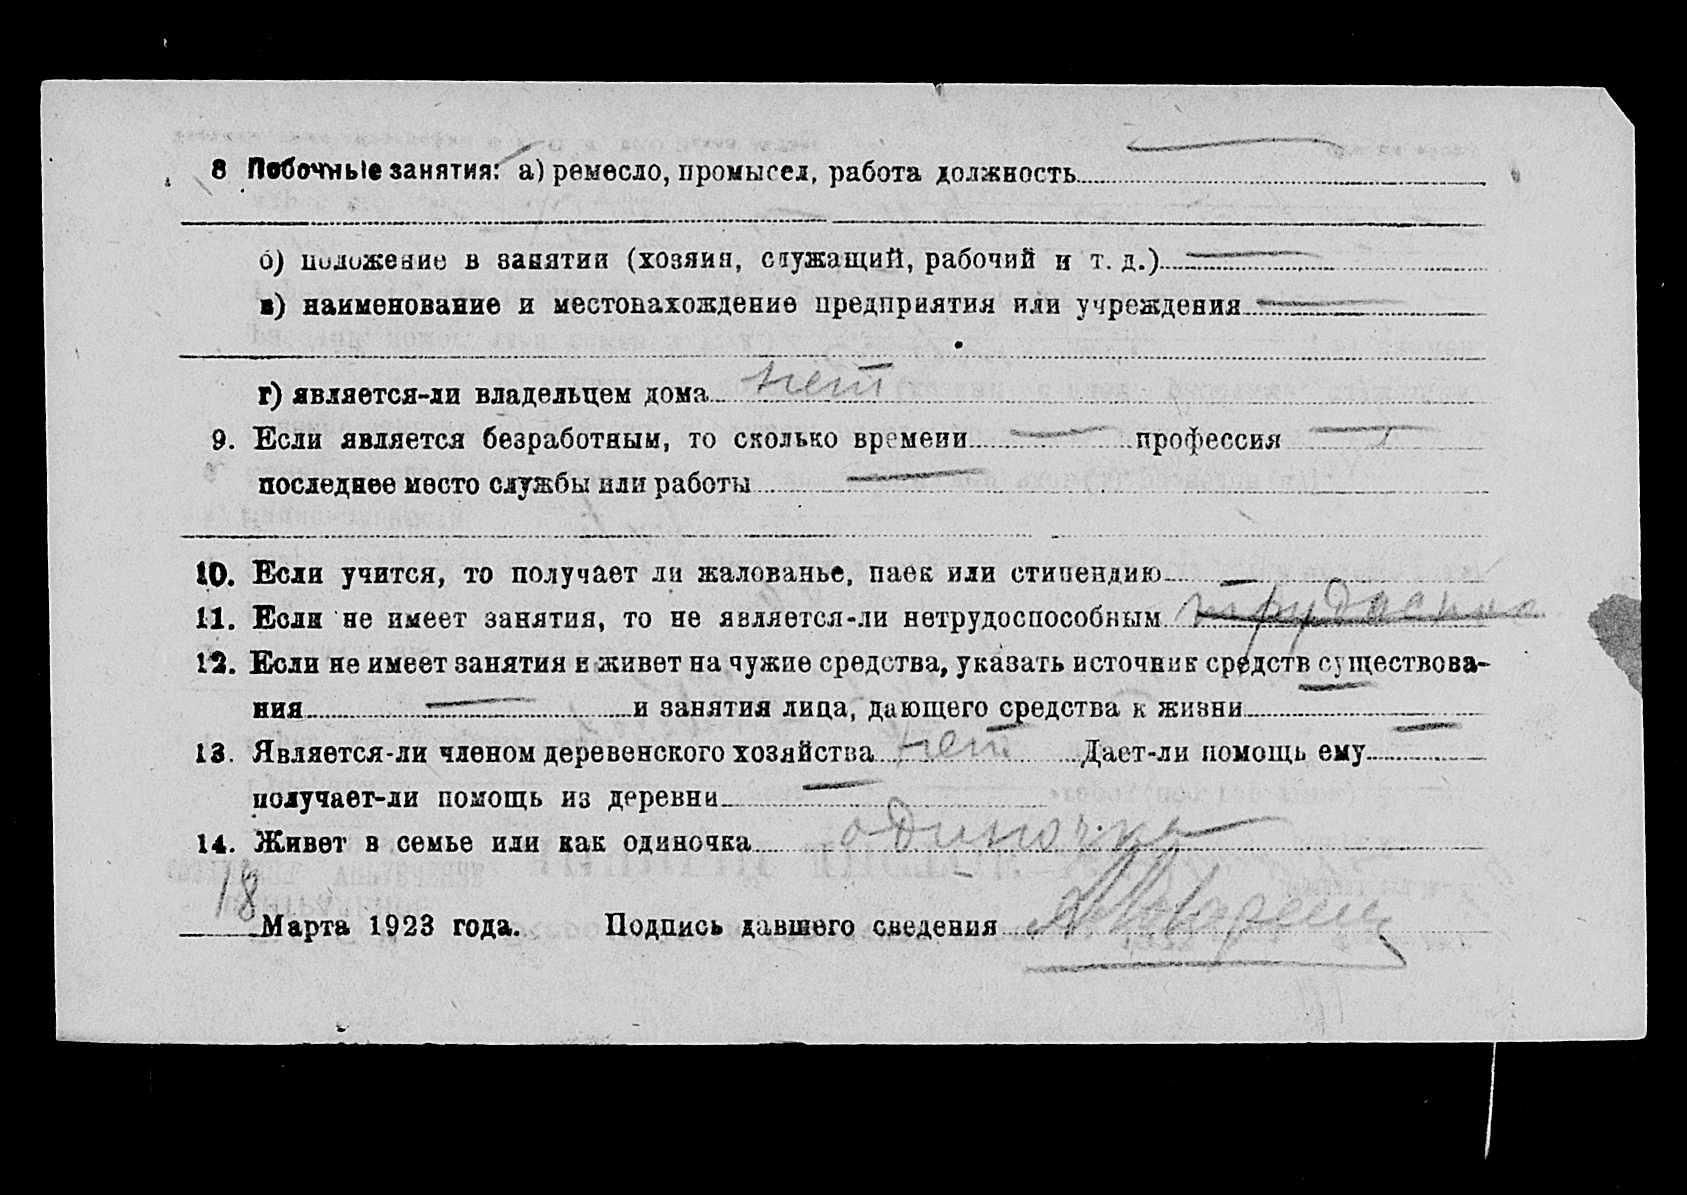 8 Побочные занятия: а) ремесло, промысел, работа должность
б) положение в занятии (хозяин, служащий, рабочий и т. д.)
в) наименование и местонахождение предприятия или учреждения
г) является-ли владельцем дома нет
9. Если является безработным, то сколько времени профессия
последнее место службы или работы
10. Если учится, то получает ли жалованье, паек или стипендию
11. Если не имеет занятия, то не является-ли нетрудоспособным
12. Если не имеет занятия и живет на чужие средства, указать источник средств существова-
ния и занятия лица, дающего средства к жизни
13. Является-ли членом деревенского хозяйства нет Дает-ли помощь ему
получает-ли помощь из деревни
14. Живет в семье или как одиночка одиночка
18 Марта 1923 года. Подпись давшего сведения